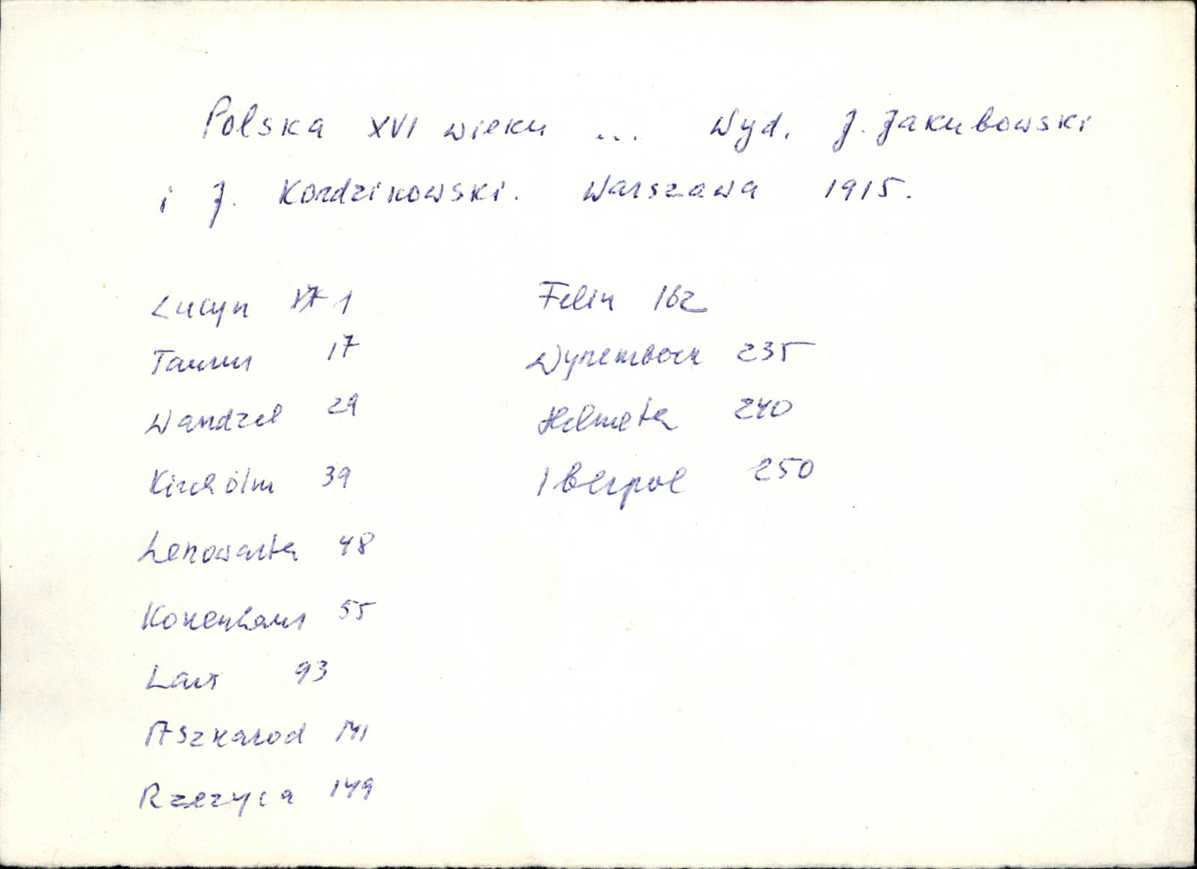 Polska XVI wieku ... Wyd. J. Jakubowski
i J. Kordzikowski. Warszawa 1915.
Lucyn 1
Taurus 17
Wandzel 29
Kirchólm 39
Lenowarta 48
Kokenhaus 55
93
Aszkarod 141
Rzezyca 149
Felin 162
235
Helmeta 240
Iberpol 250